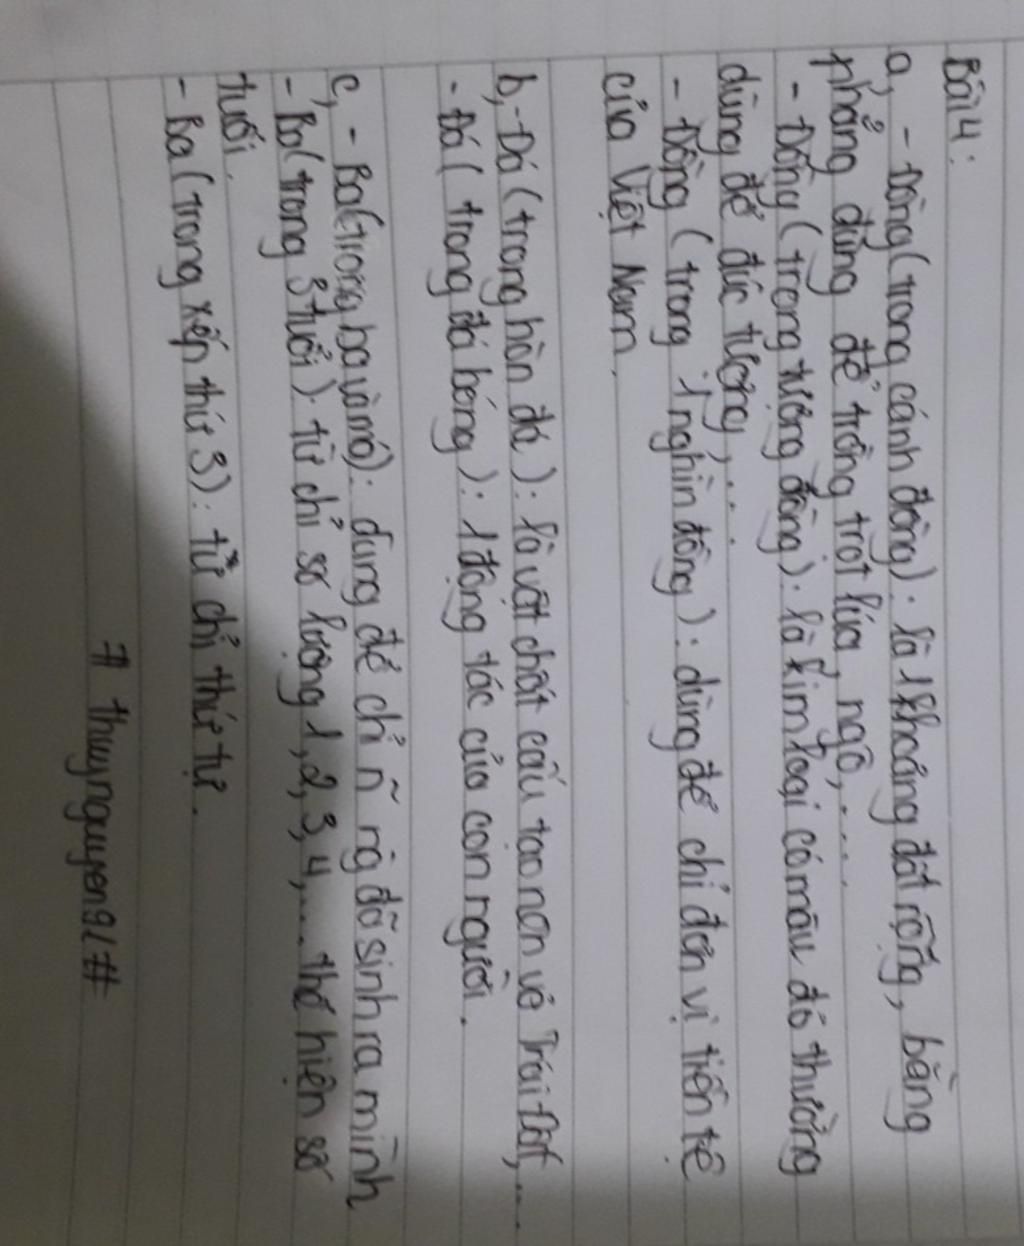 Bài 4:
a, - Đồng (trong cánh đồng): là 1 khoảng đất rộng, bằng
phẳng dùng để trồng trọt lúa, ngô,.....
- Đồng (trong tượng đồng): là kim loại có màu đỏ thường
dùng để đúc tượng,....
- Đồng (trong 1 nghìn đồng): dùng để chỉ đơn vị tiền tệ
của Việt Nam.
b, - Đá (trong hòn đá): là vật chất cấu tạo nên vỏ Trái Đất,...
- Đá (trong đá bóng): 1 động tác của con người.
c, - Ba (trong ba và má): dùng để chỉ ng đã sinh ra mình
- Ba (trong 3 tuổi): từ chỉ số lượng 1, 2, 3, 4,.... thể hiện số
tuổi.
- Ba (trong xếp thứ 3): từ chỉ thứ tự.
# thuynguyen91 #